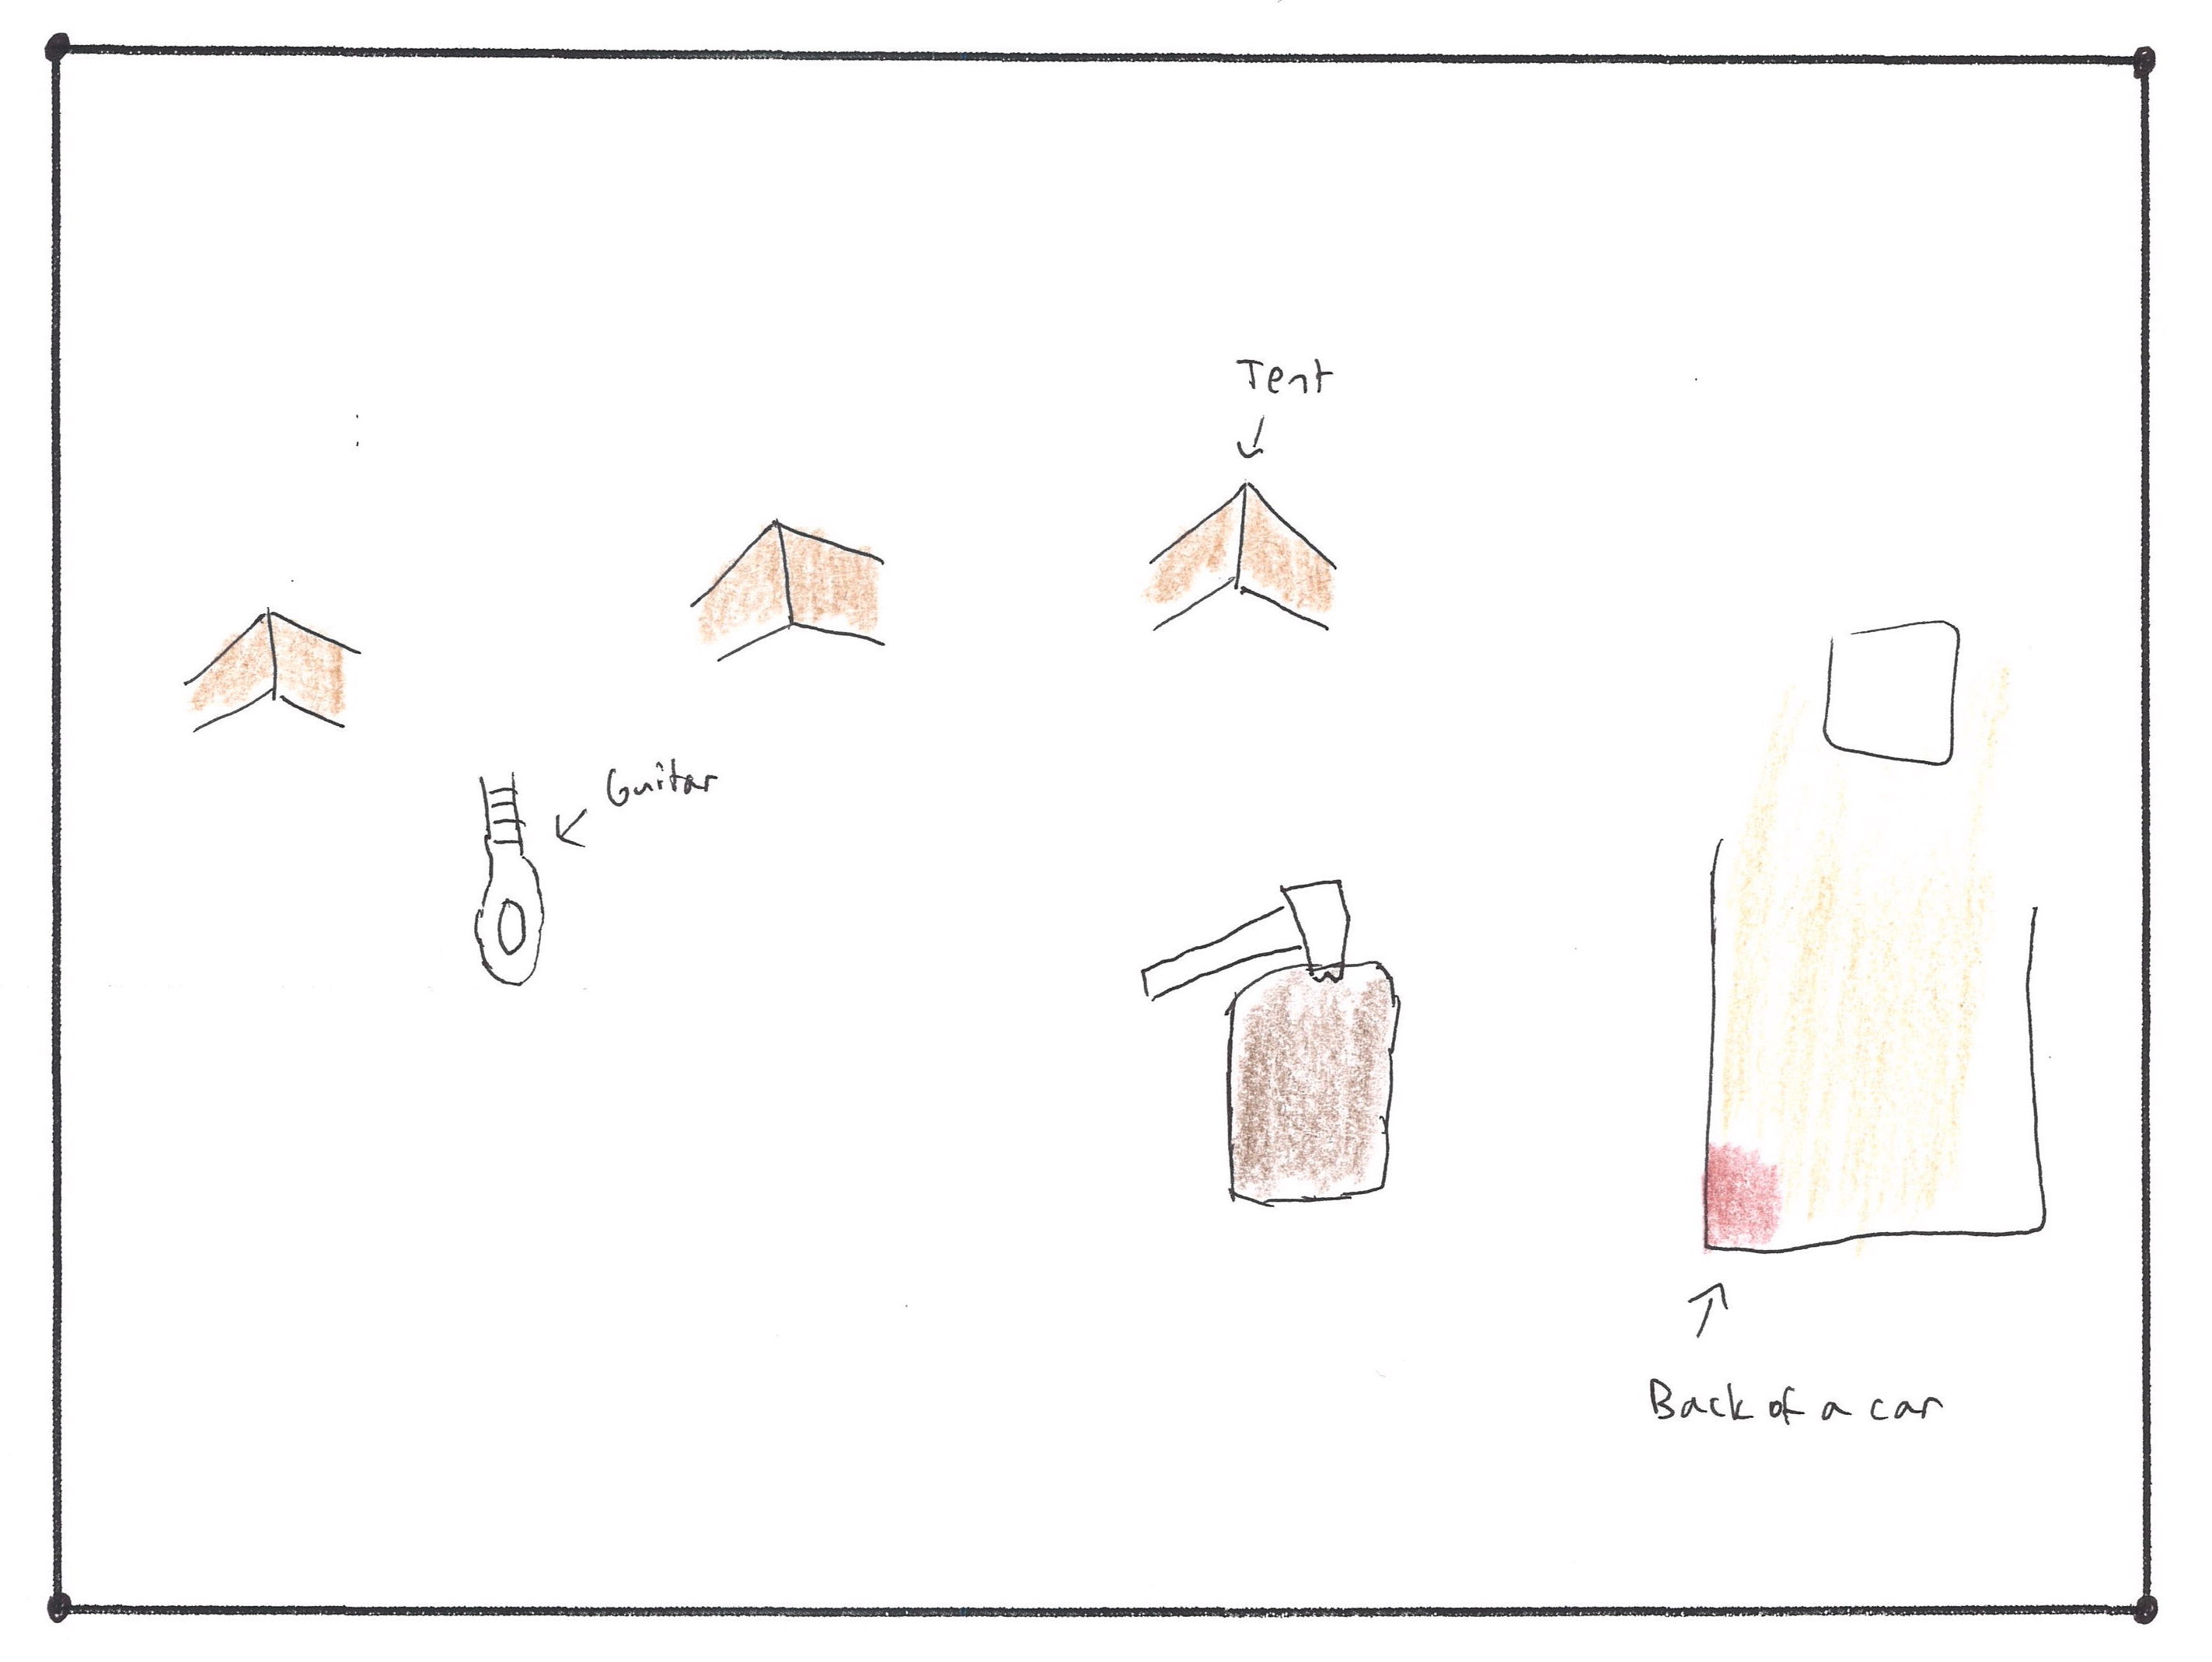 Tent
Guitar
Back of a car